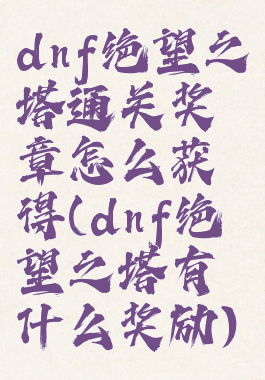 dnf绝望之
塔通关奖
章怎么获
得(dnf绝
望之塔有
什么奖励)